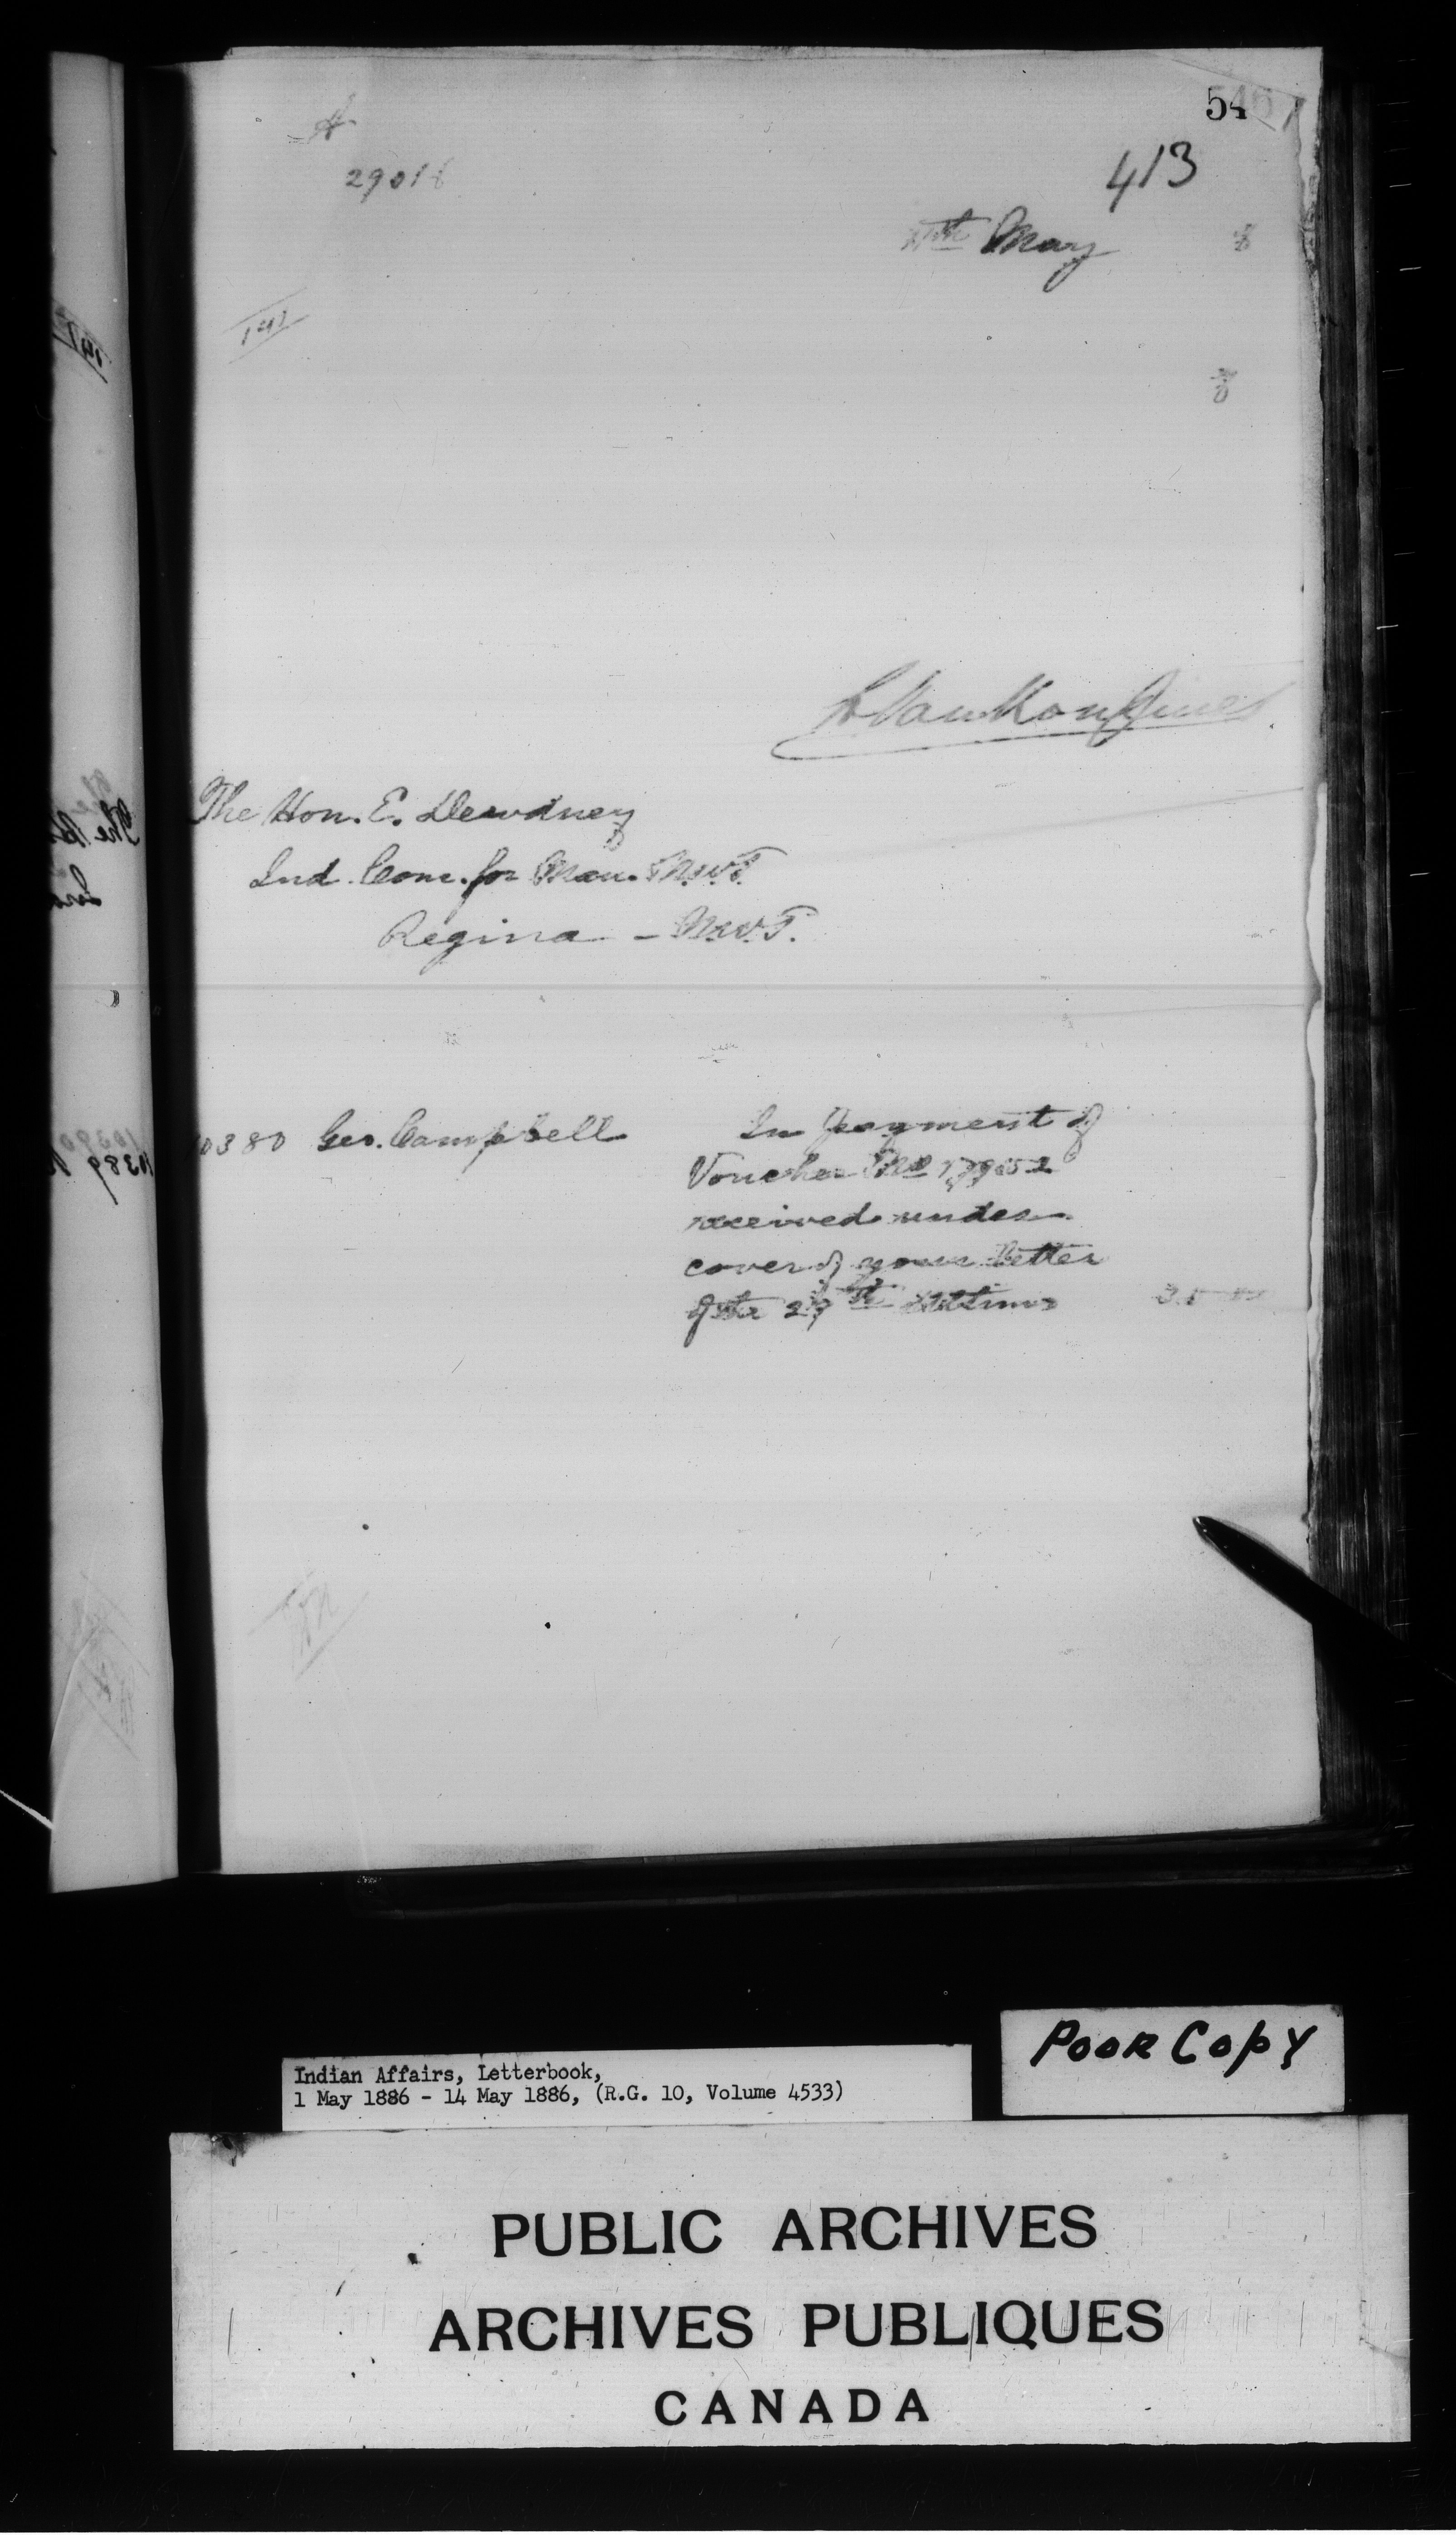 A
54
413
2901
May
8
147
8
L Vankoughnet
The Hon. E. Dewdney
Ind. Com. for Man. N.W.T.
Regina - N.W.T.
10380 Geo. Campbell
In payment of
Voucher No
received under
cover of your letter
of the 29th ultimo 35
Indian Affairs, Letterbook,
1 May 1886 - 14 May 1886, (R.G. 10, Volume 4533)
POOR COPY
PUBLIC ARCHIVES
ARCHIVES PUBLIQUES
CANADA